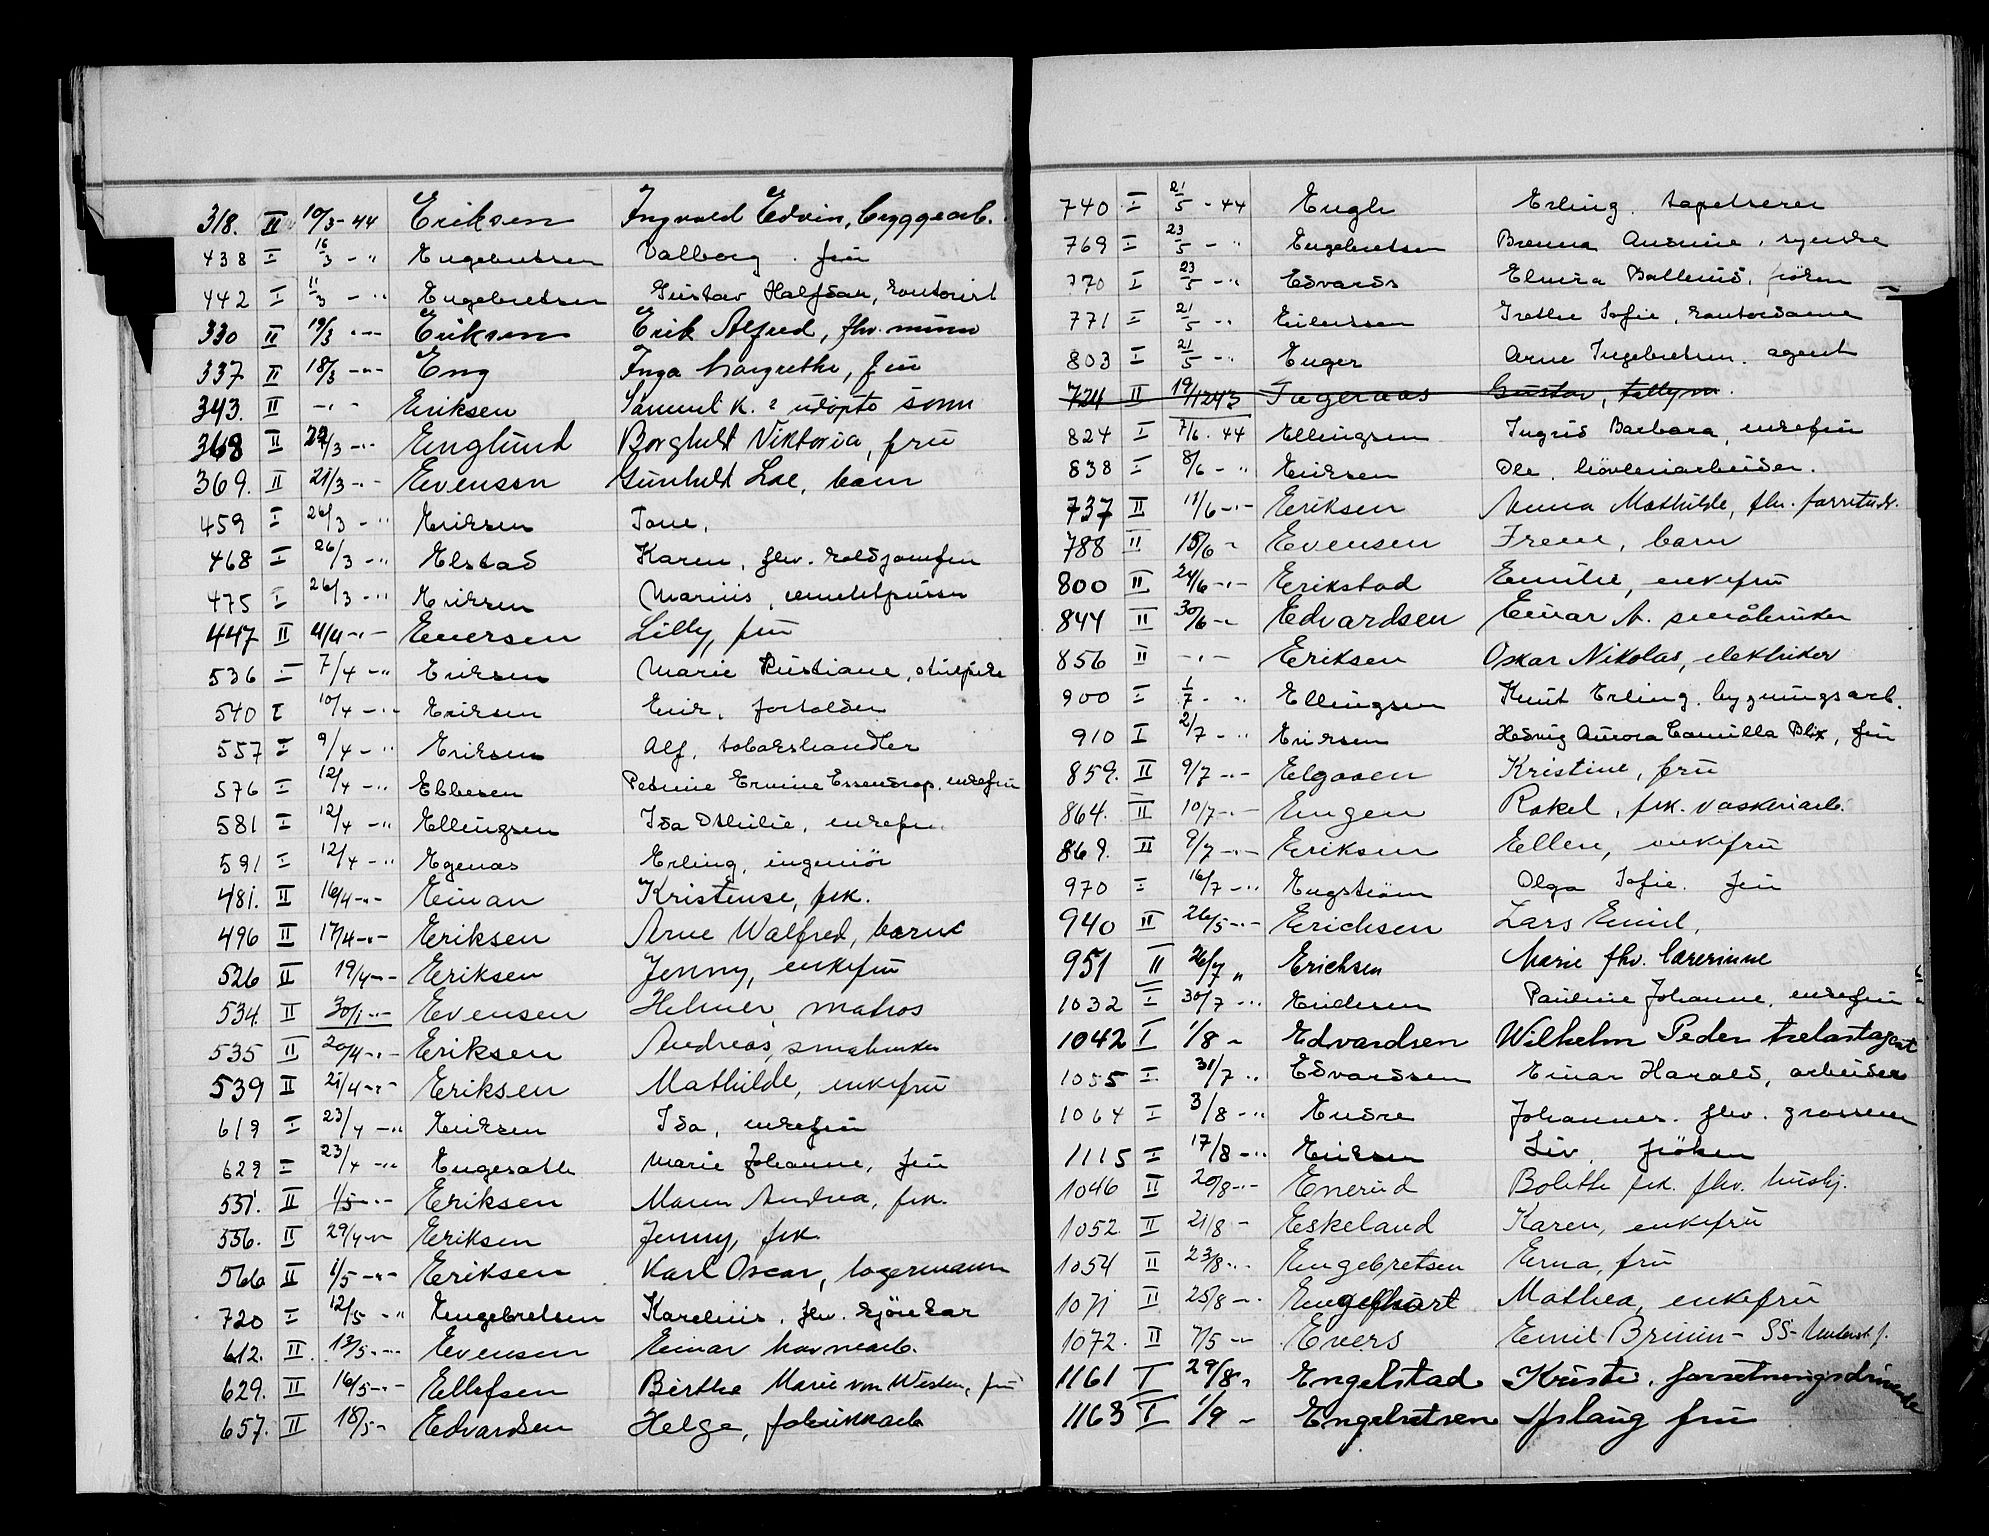 318. II 10/3-44 Eriksen Ingvald Edvin, byggearb.
438 I 16/3 - " Engebretsen Valborg. fru
442 I 11/3 - " Engebretsen Gustav Halfdan, kontorist
330 II 19/3 -"- Eriksen Erik Alfred, fhv. murer
337 II 18/3 -"- Eng Inga Margrethe, fru
343. II -"- Eriksen Samuel K. s udøpte sønn
368 II 22/3 -"- Englund Borghild Viktoria, fru
369. II 21/3 -"- Evensen Gunhild Loe, barn
459 I 26/3 - " Eriksen Tone,
468 I 26/3 - " Elstad Karen, fhv. koldjomfru
475 I 26/3 - " Eriksen Marius,
447 II 4/4 -"- Enersen Lilly, fru
536 I 7/4 - " Eriksen Marie Kristiane,
540 I 10/4 - " Eriksen Erik, forvalder
557 I 9/4 - " Eriksen Alf, tobakshandler
576 I 12/4 - " Ebbesen Petrine Ervine Essendrop, enkefru
581 I 12/4 - " Ellingsen Ida Othilie, enkefru
591 I 12/4 - " Egenas Erling, ingeniör
481. II 16/4 -"- Einan Kristense, frk.
496 II 17/4 -"- Eriksen Arne Walfred, barn
526 II 19/4 -"- Eriksen Jenny, enkefru
534. II 30/1 -"- Evensen Helmer, matros
535 II 20/4 -"- Eriksen Andreas, småbruker
539 II 21/4 -"- Eriksen Mathilde, enkefru
619 I 23/4 - " Eriksen Ida, enkefru
629 I 23/4 - " Engerath Marie Johanne, fru
551. II 1/5 -"- Eriksen Maren Andrea, frk.
556. II 29/4 -"- Eriksen Jenny, frk.
566 II 1/5 -"- Eriksen Karl Oscar, lagermann
720 I 12/5 - " Engebretsen Karelius. fhv. kjörekar
612. II 13/5 -"- Evensen Einar havnearb.
629. II 16/5 -"- Ellefsen Birthe Marie von Westen, fru
657. II 18/5 - Edvardsen Helge, fabrikkarb
740 I 21/5 - 44 Engh Erling. tapetserer
769 I 23/5 - " Engebretsen Brenna Ansine, syerske
770 I 23/5 - " Edvards Elmira Ballerud, fröken
771 I 21/5 - " Eilertsen Irethe Sofie, kontordame
803 I 21/5 - " Enger Arne Ingebretsen. agent
724 II 19/12 43 Ingeraas Gustav, tallym.
824 I 7/6. 44 Ellingsen Ingrid Barbara, enkefru
838 I 8/6 - " Eriksen Ole, hövleriarbeider.
737 II 11/6 -"- Eriksen Anna Mathilde, fhv. forretndr.
788 II 15/6 - Evensen Irene, barn
800 II 24/6 -"- Erikstad Emilie, enkefru
844 II 30/6 - Edvardsen Einar A. småbruker
856 II -"- Eriksen Oskar Nikolas, elektriker
900 I 1/7 - " Ellingsen Knut Erling. bygningsarb.
910 I 2/7 - " Eriksen Hedvig Aurora Camilla Blix, fru
859. II 9/7 -"- Elgaaen Kristine, fru
864. II 10/7 -"- Engen Rakel, frk. vaskeriarb.
869. II 9/7 -"- Eriksen Ellen, enkefru
970 I 16/7 - " Engström Olga Sofie. fru
940 II 26/5 -"- Erichsen Lars Emil,
951 II 26/7 " Erichsen Marie fhv. lærerinne
1032 I 30/7 - " Eidesen Pauline Johanne, enkefru
1042 I 1/8 - Edvardsen Wilhelm Peder trelastagent
1055 I 31/7 " Edvardsen Einar Harald, arbeider
1064 I 3/8 - " Endre Johannes. fhv. grosserer
1115 I 17/8 - " Eriksen Liv, fröken
1046 II 20/8 -"- Enerud Bolette frk. fhv. hushj.
1052 II 21/8 - Eskeland Karen, enkefru
1054 II 23/8 -"- Engebretsen Erna, fru
1071 II 25/8 - Engelhart Mathea, enkefru
1072. II 7/5 - Evers Emil Bruun- SS-
1161 I 29/8 " Engelstad Kristi, forretningsdrivende
1163 I 1/9 - Engebretsen Aslaug fru